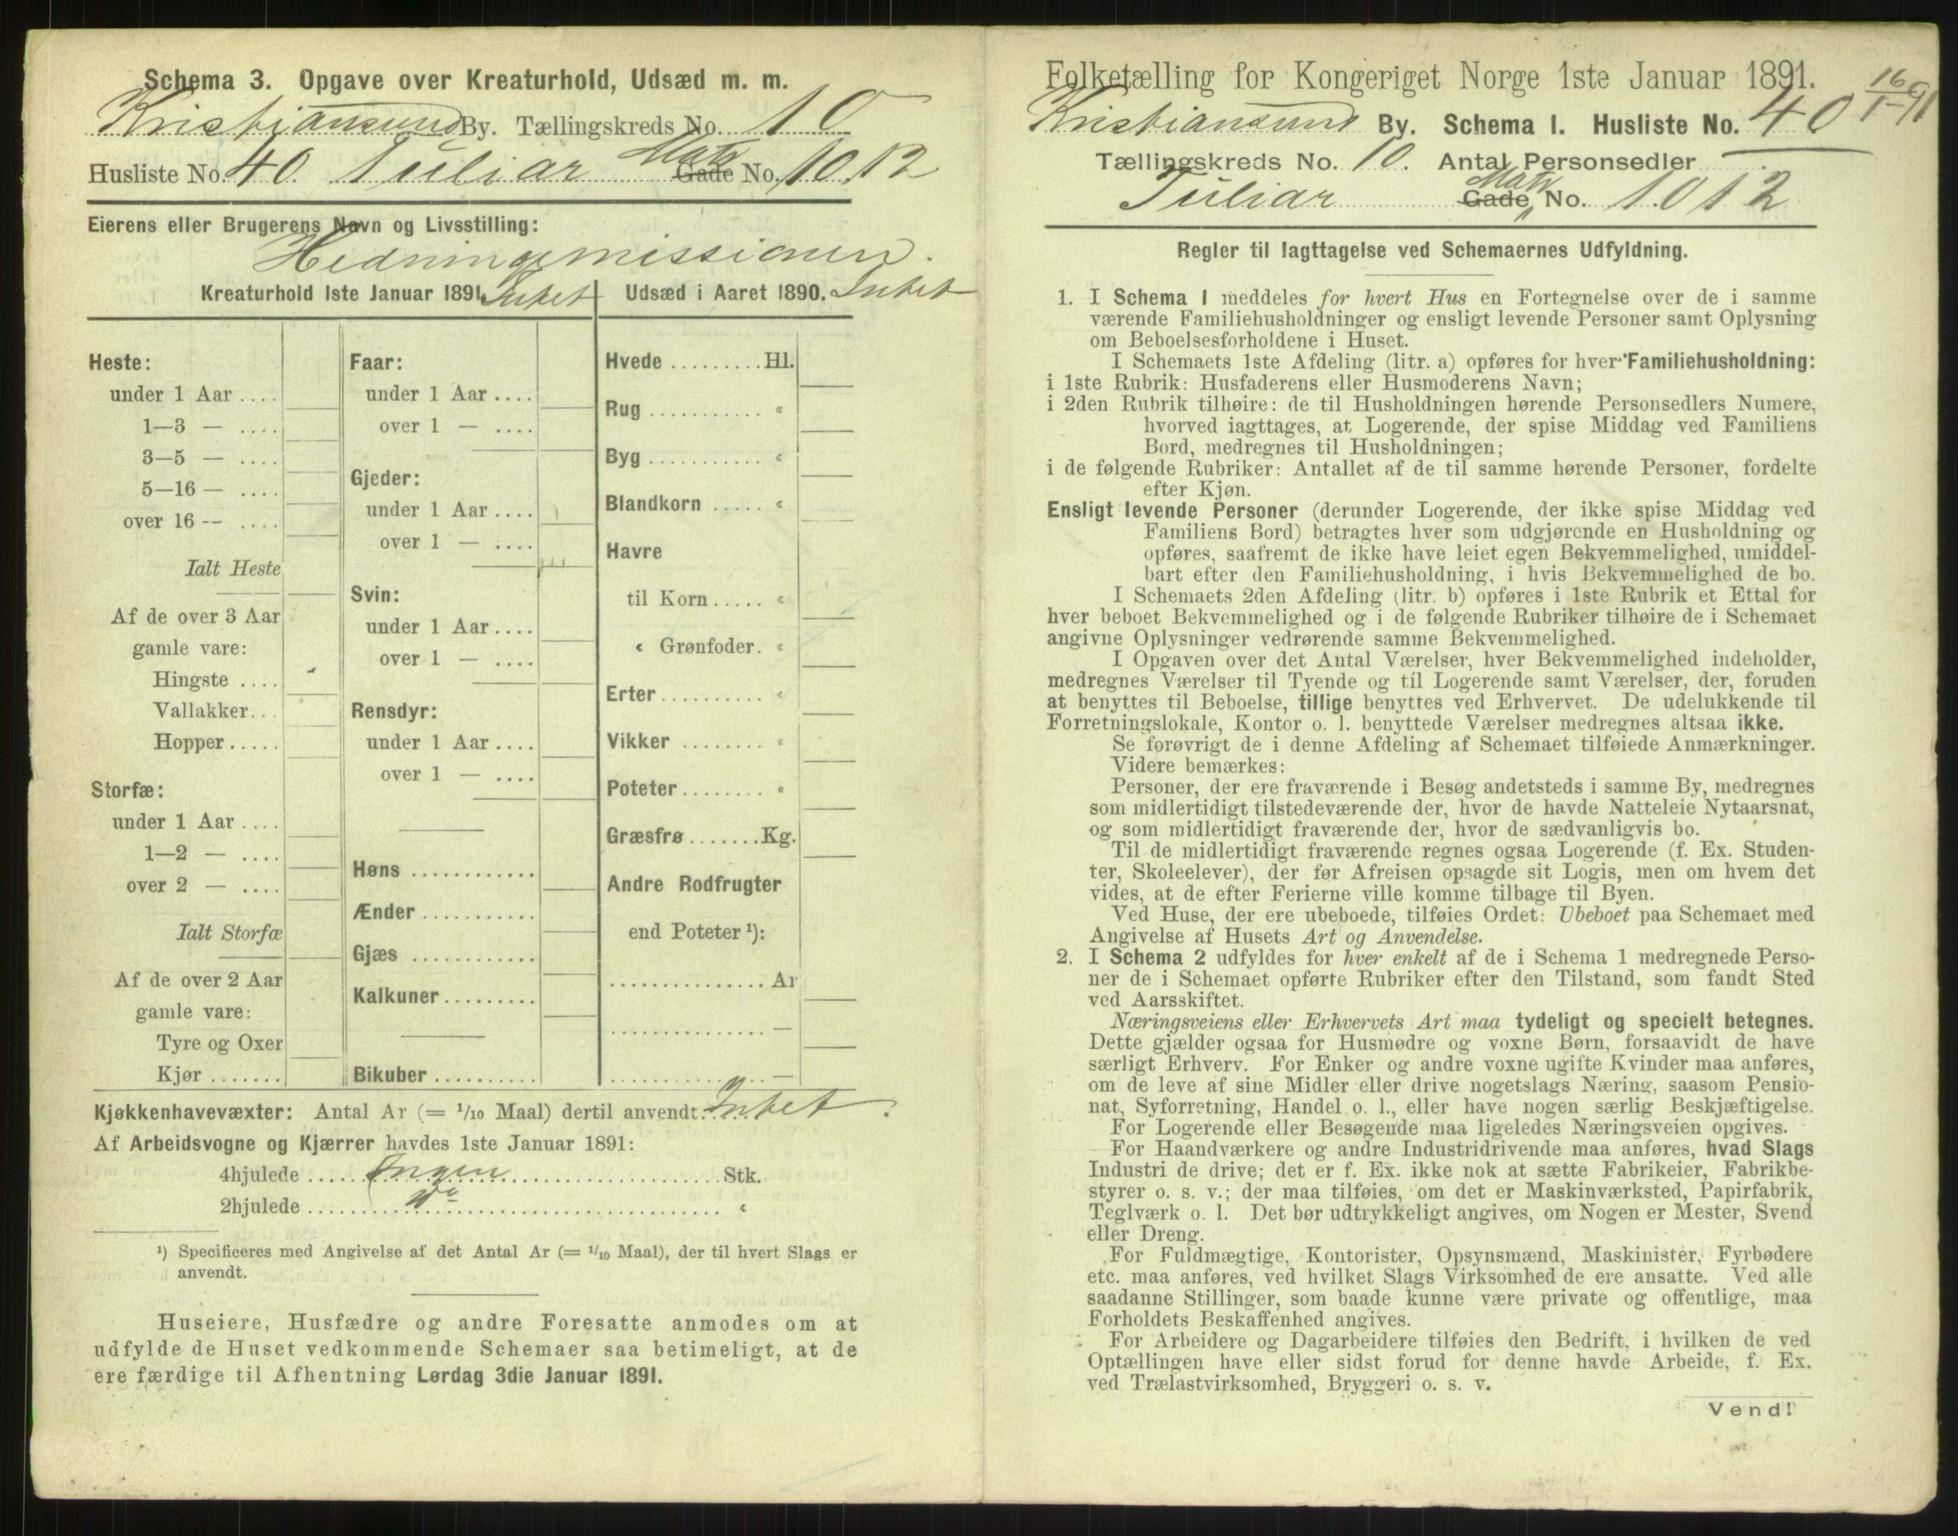 Schema 3. Opgave over Kreaturhold, Udsæd m. m.
Kristiansund By. Tællingskreds No. 10
Husliste No. 40 Tuliar Matr Gade No. 1012
Eierens eller Brugerens Navn og Livsstilling:
Hedningemissionen.
Kreaturhold 1ste Januar 1891. Intet
Udsæd i Aaret 1890. Intet
Heste:
under 1 Aar ....
1—3 — ....
3—5 — ....
5—16 — ....
over 16 — ....
Ialt Heste
Af de over 3 Aar
gamle vare:
Hingste ....
Vallakker...
Hopper.....
Storfæ:
under 1 Aar ....
1—2 — ....
over 2 — ....
Ialt Storfæ
Af de over 2 Aar
gamle vare:
Tyre og Oxer
Kjør .......
Faar:
under 1 Aar ....
over 1 — ....
Gjeder:
under 1 Aar ....
over 1 — ....
Svin:
under 1 Aar ....
over 1 — ....
Rensdyr:
under 1 Aar ....
over 1 — ....
Høns ............
Ænder ...........
Gjæs ............
Kalkuner .........
Bikuber ..........
Hvede ......... Hl.
Rug ........... «
Byg ........... «
Blandkorn ..... «
Havre
til Korn ..... «
« Grønfoder. «
Erter .......... «
Vikker ......... «
Poteter ........ «
Græsfrø ....... Kg.
Andre Rodfrugter
end Poteter ¹):
............... Ar
............... —
............... —
Kjøkkenhavevæxter: Antal Ar (= 1/10 Maal) dertil anvendt. Intet.
Af Arbeidsvogne og Kjærrer havdes 1ste Januar 1891:
4hjulede ..... Ingen ..... Stk.
2hjulede ..... do ..... «
¹) Specificeres med Angivelse af det Antal Ar (= 1/10 Maal), der til hvert Slags er
anvendt.
Huseiere, Husfædre og andre Foresatte anmodes om at
udfylde de Huset vedkommende Schemaer saa betimeligt, at de
ere færdige til Afhentning Lørdag 3die Januar 1891.
Folketælling for Kongeriget Norge 1ste Januar 1891. 16/1-91
Kristiansund By. Schema I. Husliste No. 40
Tællingskreds No. 10. Antal Personsedler
Tuliar Matr Gade „ No. 1012
Regler til Iagttagelse ved Schemaernes Udfyldning.
1. I Schema I meddeles for hvert Hus en Fortegnelse over de i samme
værende Familiehusholdninger og ensligt levende Personer samt Oplysning
om Beboelsesforholdene i Huset.
I Schemaets 1ste Afdeling (litr. a) opføres for hver Familiehusholdning:
i 1ste Rubrik: Husfaderens eller Husmoderens Navn;
i 2den Rubrik tilhøire: de til Husholdningen hørende Personsedlers Numere,
hvorved iagttages, at Logerende, der spise Middag ved Familiens
Bord, medregnes til Husholdningen;
i de følgende Rubriker: Antallet af de til samme hørende Personer, fordelte
efter Kjøn.
Ensligt levende Personer (derunder Logerende, der ikke spise Middag ved
Familiens Bord) betragtes hver som udgjørende en Husholdning og
opføres, saafremt de ikke have leiet egen Bekvemmelighed, umiddel-
bart efter den Familiehusholdning, i hvis Bekvemmelighed de bo.
I Schemaets 2den Afdeling (litr. b) opføres i 1ste Rubrik et Ettal for
hver beboet Bekvemmelighed og i de følgende Rubriker tilhøire de i Schemaet
angivne Oplysninger vedrørende samme Bekvemmelighed.
I Opgaven over det Antal Værelser, hver Bekvemmelighed indeholder,
medregnes Værelser til Tyende og til Logerende samt Værelser, der, foruden
at benyttes til Beboelse, tillige benyttes ved Erhvervet. De udelukkende til
Forretningslokale, Kontor o. l. benyttede Værelser medregnes altsaa ikke.
Se forøvrigt de i denne Afdeling af Schemaet tilføiede Anmærkninger.
Videre bemærkes:
Personer, der ere fraværende i Besøg andetsteds i samme By, medregnes
som midlertidigt tilstedeværende der, hvor de havde Natteleie Nytaarsnat,
og som midlertidigt fraværende der, hvor de sædvanligvis bo.
Til de midlertidigt fraværende regnes ogsaa Logerende (f. Ex. Studen-
ter, Skoleelever), der før Afreisen opsagde sit Logis, men om hvem det
vides, at de efter Ferierne ville komme tilbage til Byen.
Ved Huse, der ere ubeboede, tilføies Ordet: Ubeboet paa Schemaet med
Angivelse af Husets Art og Anvendelse.
2. I Schema 2 udfyldes for hver enkelt af de i Schema 1 medregnede Perso-
ner de i Schemaet opførte Rubriker efter den Tilstand, som fandt Sted
ved Aarsskiftet.
Næringsveiens eller Erhvervets Art maa tydeligt og specielt betegnes.
Dette gjælder ogsaa for Husmødre og voxne Børn, forsaavidt de have
særligt Erhverv. For Enker og andre voxne ugifte Kvinder maa anføres,
om de leve af sine Midler eller drive nogetslags Næring, saasom Pensio-
nat, Syforretning, Handel o. l., eller have nogen særlig Beskjæftigelse.
For Logerende eller Besøgende maa ligeledes Næringsveien opgives.
For Haandværkere og andre Industridrivende maa anføres, hvad Slags
Industri de drive; det er f. Ex. ikke nok at sætte Fabrikeier, Fabrikbe-
styrer o. s. v.; der maa tilføies, om det er Maskinværksted, Papirfabrik,
Teglværk o. l. Det bør udtrykkeligt angives, om Nogen er Mester, Svend
eller Dreng.
For Fuldmægtige, Kontorister, Opsynsmænd, Maskinister, Fyrbødere
etc. maa anføres, ved hvilket Slags Virksomhed de ere ansatte. Ved alle
saadanne Stillinger, som baade kunne være private og offentlige, maa
Forholdets Beskaffenhed angives.
For Arbeidere og Dagarbeidere tilføies den Bedrift, i hvilken de ved
Optællingen have eller sidst forud for denne havde Arbeide, f. Ex.
ved Trælastvirksomhed, Bryggeri o. s. v.
Vend!